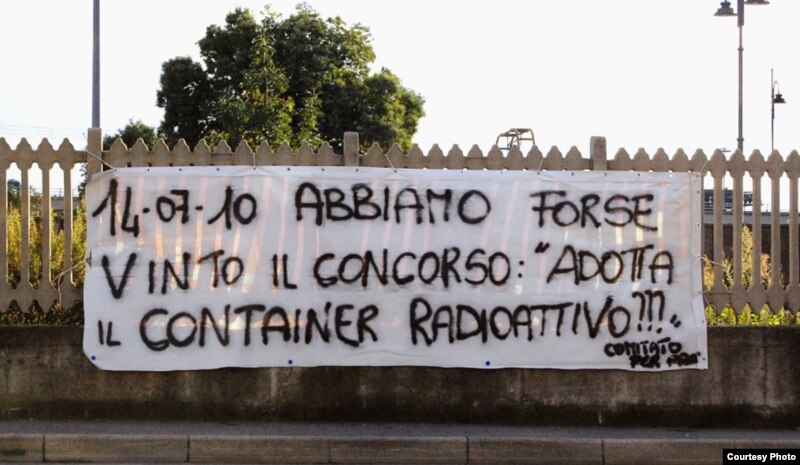 14-07-10 ABBIAMO FORSE
VINTO IL CONCORSO: "ADOTTA
IL CONTAINER RADIOATTIVO???"
COMITATO
PER PRA'
Courtesy Photo